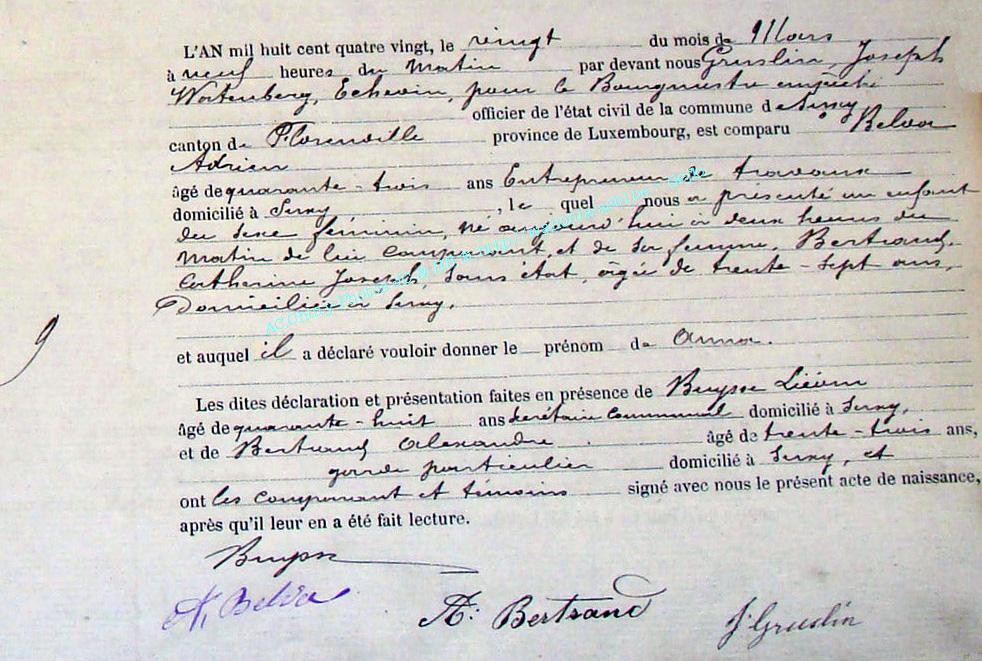 L'AN mil huit cent quatre vingt, le vingt du mois de Mars
à neuf heures du matin par devant nous Gruslin, Joseph
Echevin, pour le Bourgmestre empêché
officier de l'état civil de la commune de
canton de Florenville province de Luxembourg, est comparu Belva
Adrien
âgé de quarante-trois ans Entrepreneur de travaux
domicilié à , le quel nous a présenté un enfant
du sexe féminin, né aujourd'hui à deux heures du
matin de lui comparant, et de sa femme, Bertrand,
Catherine Joseph, sans état, âgée de trente-sept ans,
Domiciliée à
9
et auquel il a déclaré vouloir donner le prénom de Anna.
Les dites déclaration et présentation faites en présence de Buysse Liévin
âgé de quarante-huit ans Secrétaire Communal domicilié à
et de Bertrand Alexandre âgé de trente-trois ans,
garde particulier domicilié à , et
ont les comparant et témoins signé avec nous le présent acte de naissance,
après qu'il leur en a été fait lecture.
Buysse
A. Belva
A: Bertrand
J. Gruslin